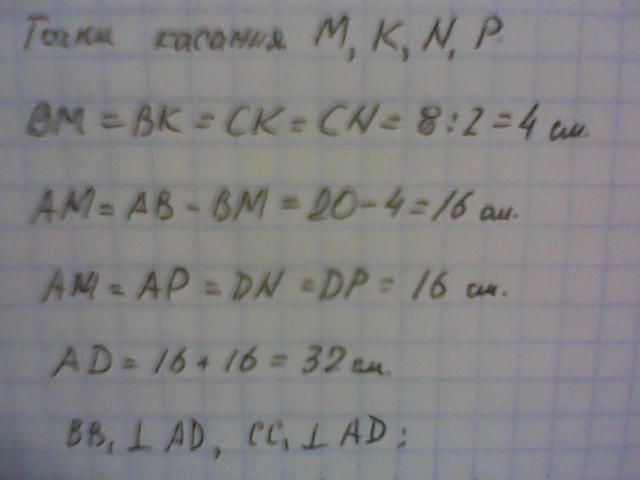 Точки касания M, K, N, P.
BM = BK = CK = CN = 8:2 = 4 см.
AM = AB - BM = 20 - 4 = 16 см.
AM = AP = DN = DP = 16 см.
AD = 16 + 16 = 32 см.
BB₁ ⊥ AD, CC₁ ⊥ AD: